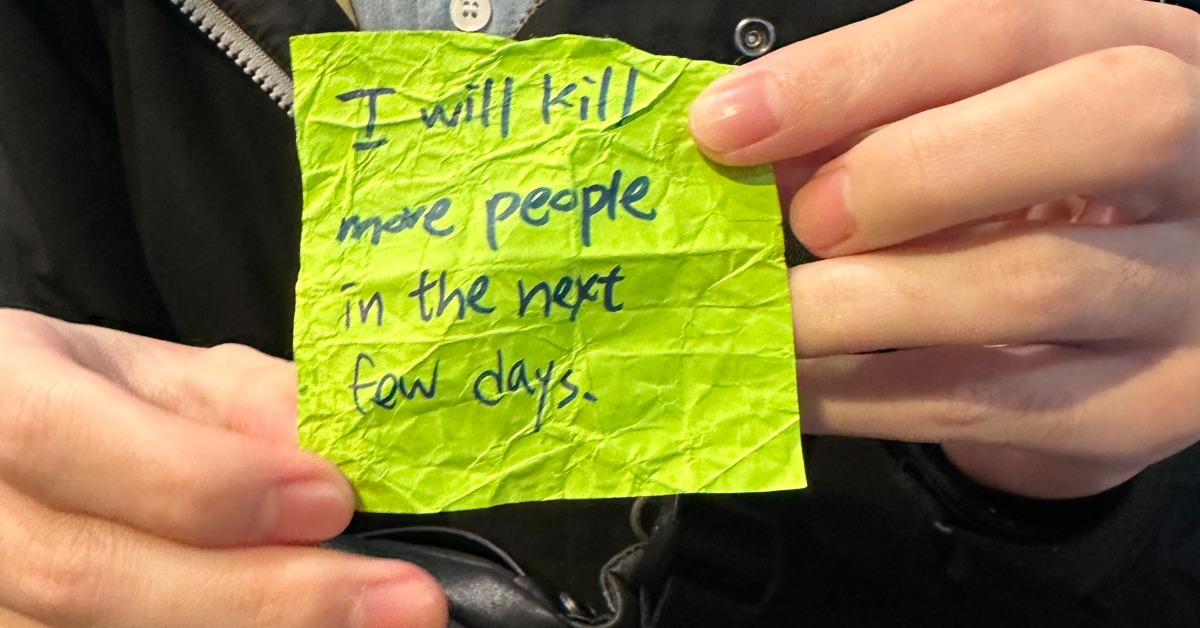 I will kill
more people
in the next
few days.